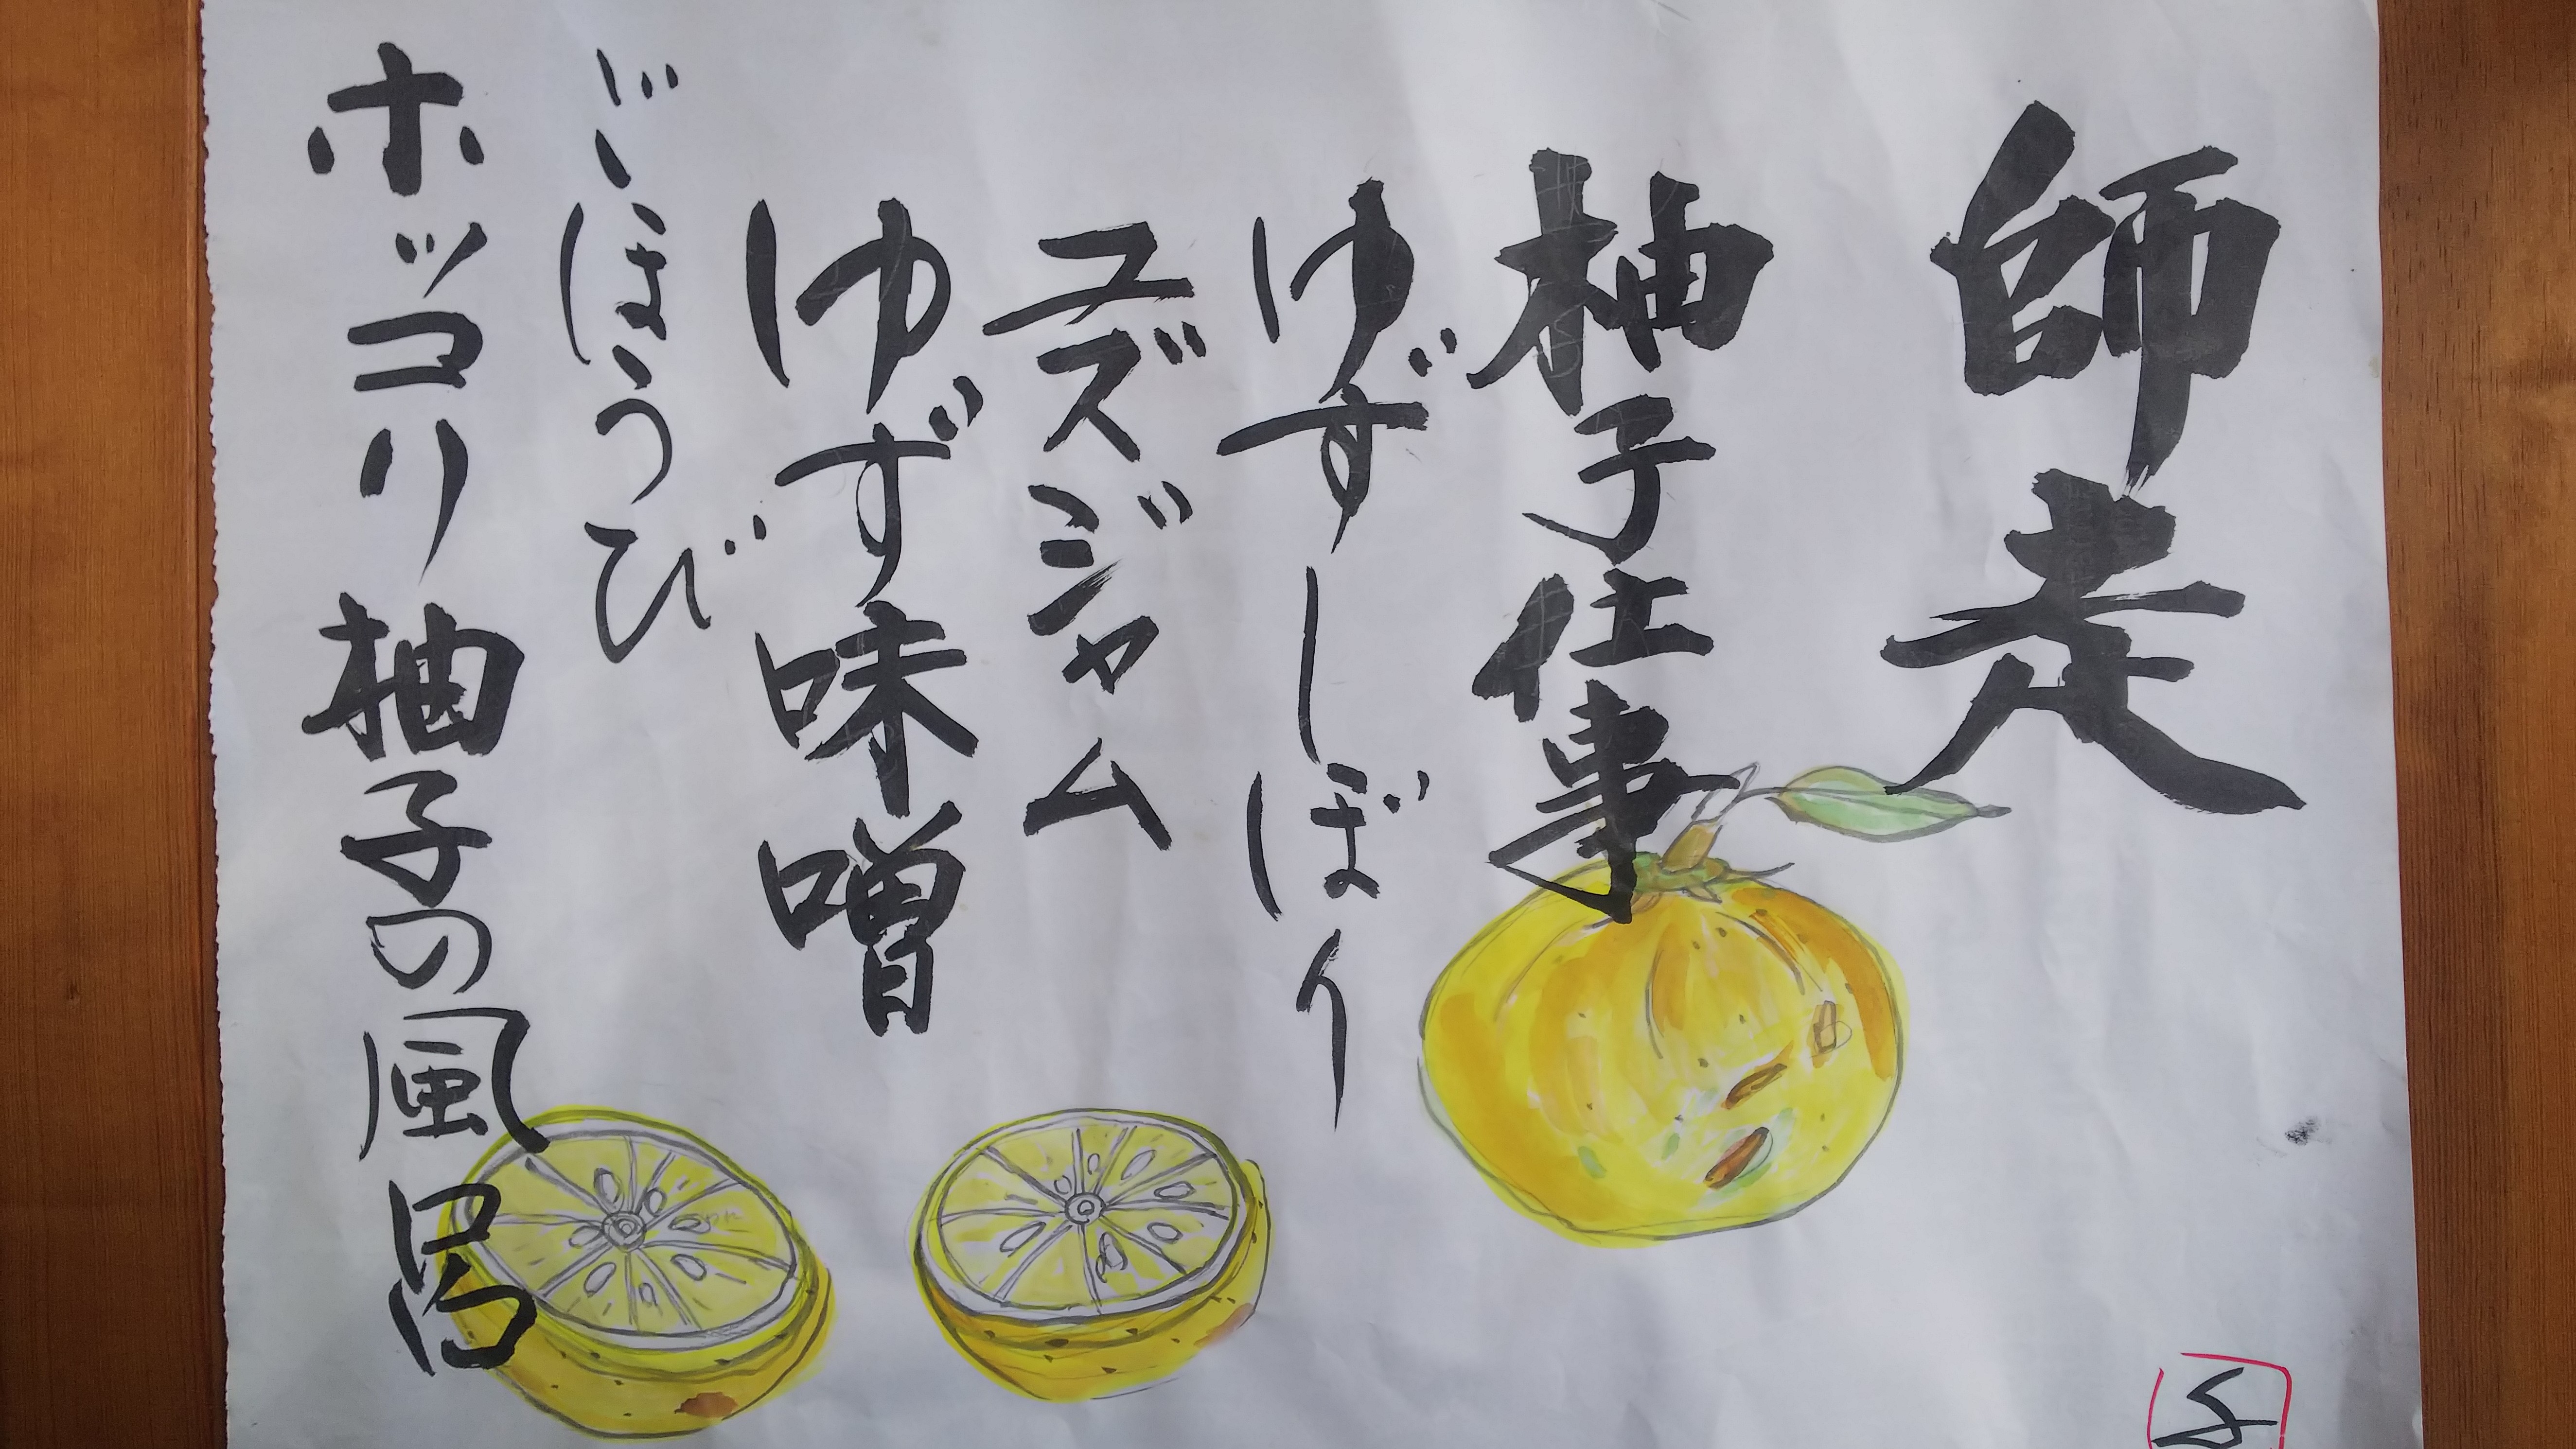 師走
柚子仕事
ゆずしぼり
ユズジャム
ゆず味噌
ごほうび
ホッコリ柚子の風呂